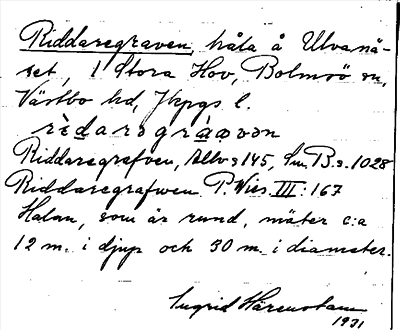 Riddaregraven, håla å Ulvanä-
set, i Stora Hov, Bolmsö sn,
Västbo hd, Jkpgs l.
Riddaregrafven, Allv s 145, Sm. B. s. 1028
Riddaregrafwen P. Wies. III: 167
Halan, som är rund, mäter c:a
12 m. i djup och 30 m. i diameter.
Ingrid Härenstam
1931